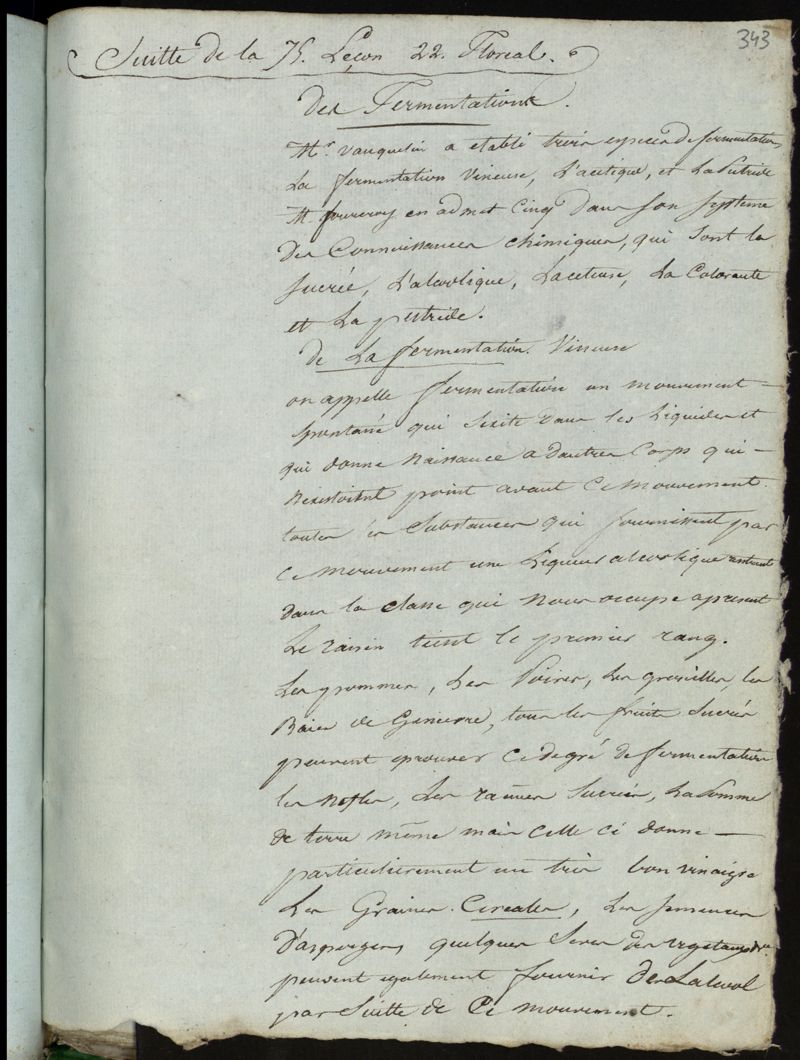 343
Suitte de la 75. Leçon 22. Floreal.
des Fermentations.
Mr. vauquelin a etabli trois especes de fermentation,
La fermentation Vineuse, L'acetique, et La Putride
Mr. fourcroy en admet Cinq dans son systeme
des Connoissances chimiques, qui sont la
sucrée, L'alcolique, L'aceteuse, La Colorante
et La putride.
de La fermentation Vineuse
on appelle fermentation un mouvement
spontané qui s'exite dans les Liquides et
qui donne Naissance a dautres Corps qui
Nexistoient point avant Ce mouvement.
toutes les Substances qui fournissent par
Ce mouvement une Liqueur alcoolique entrent
dans la classe qui Nous occupe apresent
Le raisin tient le premier rang.
Les pommes, Les Poires, Les groseilles, les
Baies de Genievre, tous les fruits Sucrés
peuvent eprouver Ce degré de fermentation
les Nefles, Les racines Sucrées, La Pomme
de terre même mais celle ci donne
particulierement un très bon vinaigre
Les Graines Cereales, Les semences
D'asperges, quelques Seves des vegetaux
peuvent egalement fournir de Lalcool
par Suitte de Ce mouvement.